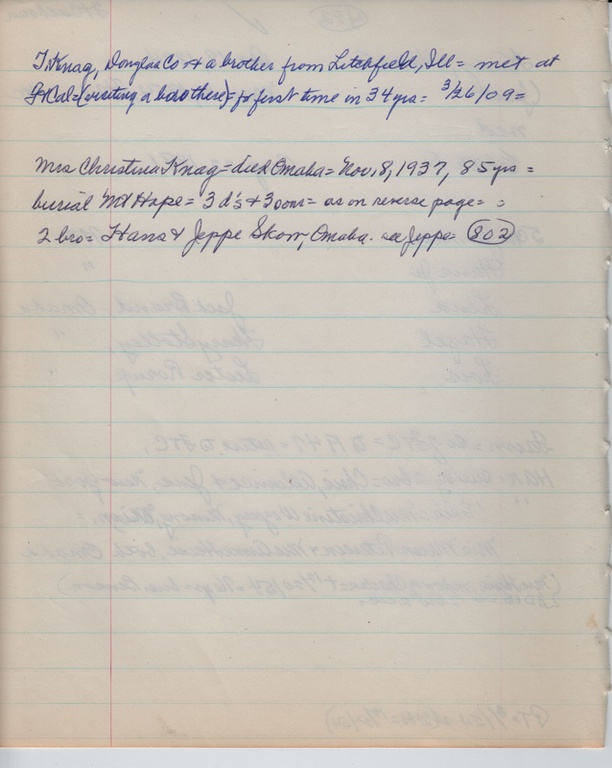 T. Knag, Douglas Co & a brother from Litchfield, Ill = met at
Ft Cal = (visiting a bro there) = for first time in 34 yrs = 3/26/09 =
Mrs Christina Knag = died Omaha = Nov, 8, 1937, 85 yrs =
burial Mt Hope = 3 d's & 3 sons = as on reverse page =
2 bro = Hans & Jeppe Skow, Omaha. see Jeppe = 802